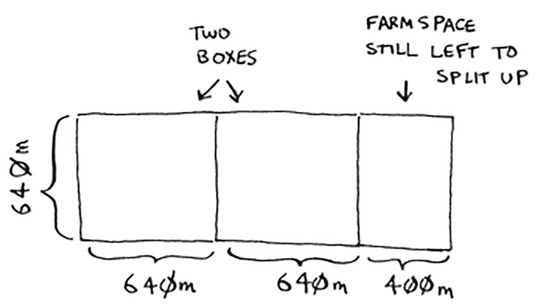 TWO
BOXES
FARMSPACE
STILL LEFT TO
SPLIT UP
640m
640m
640m
400m